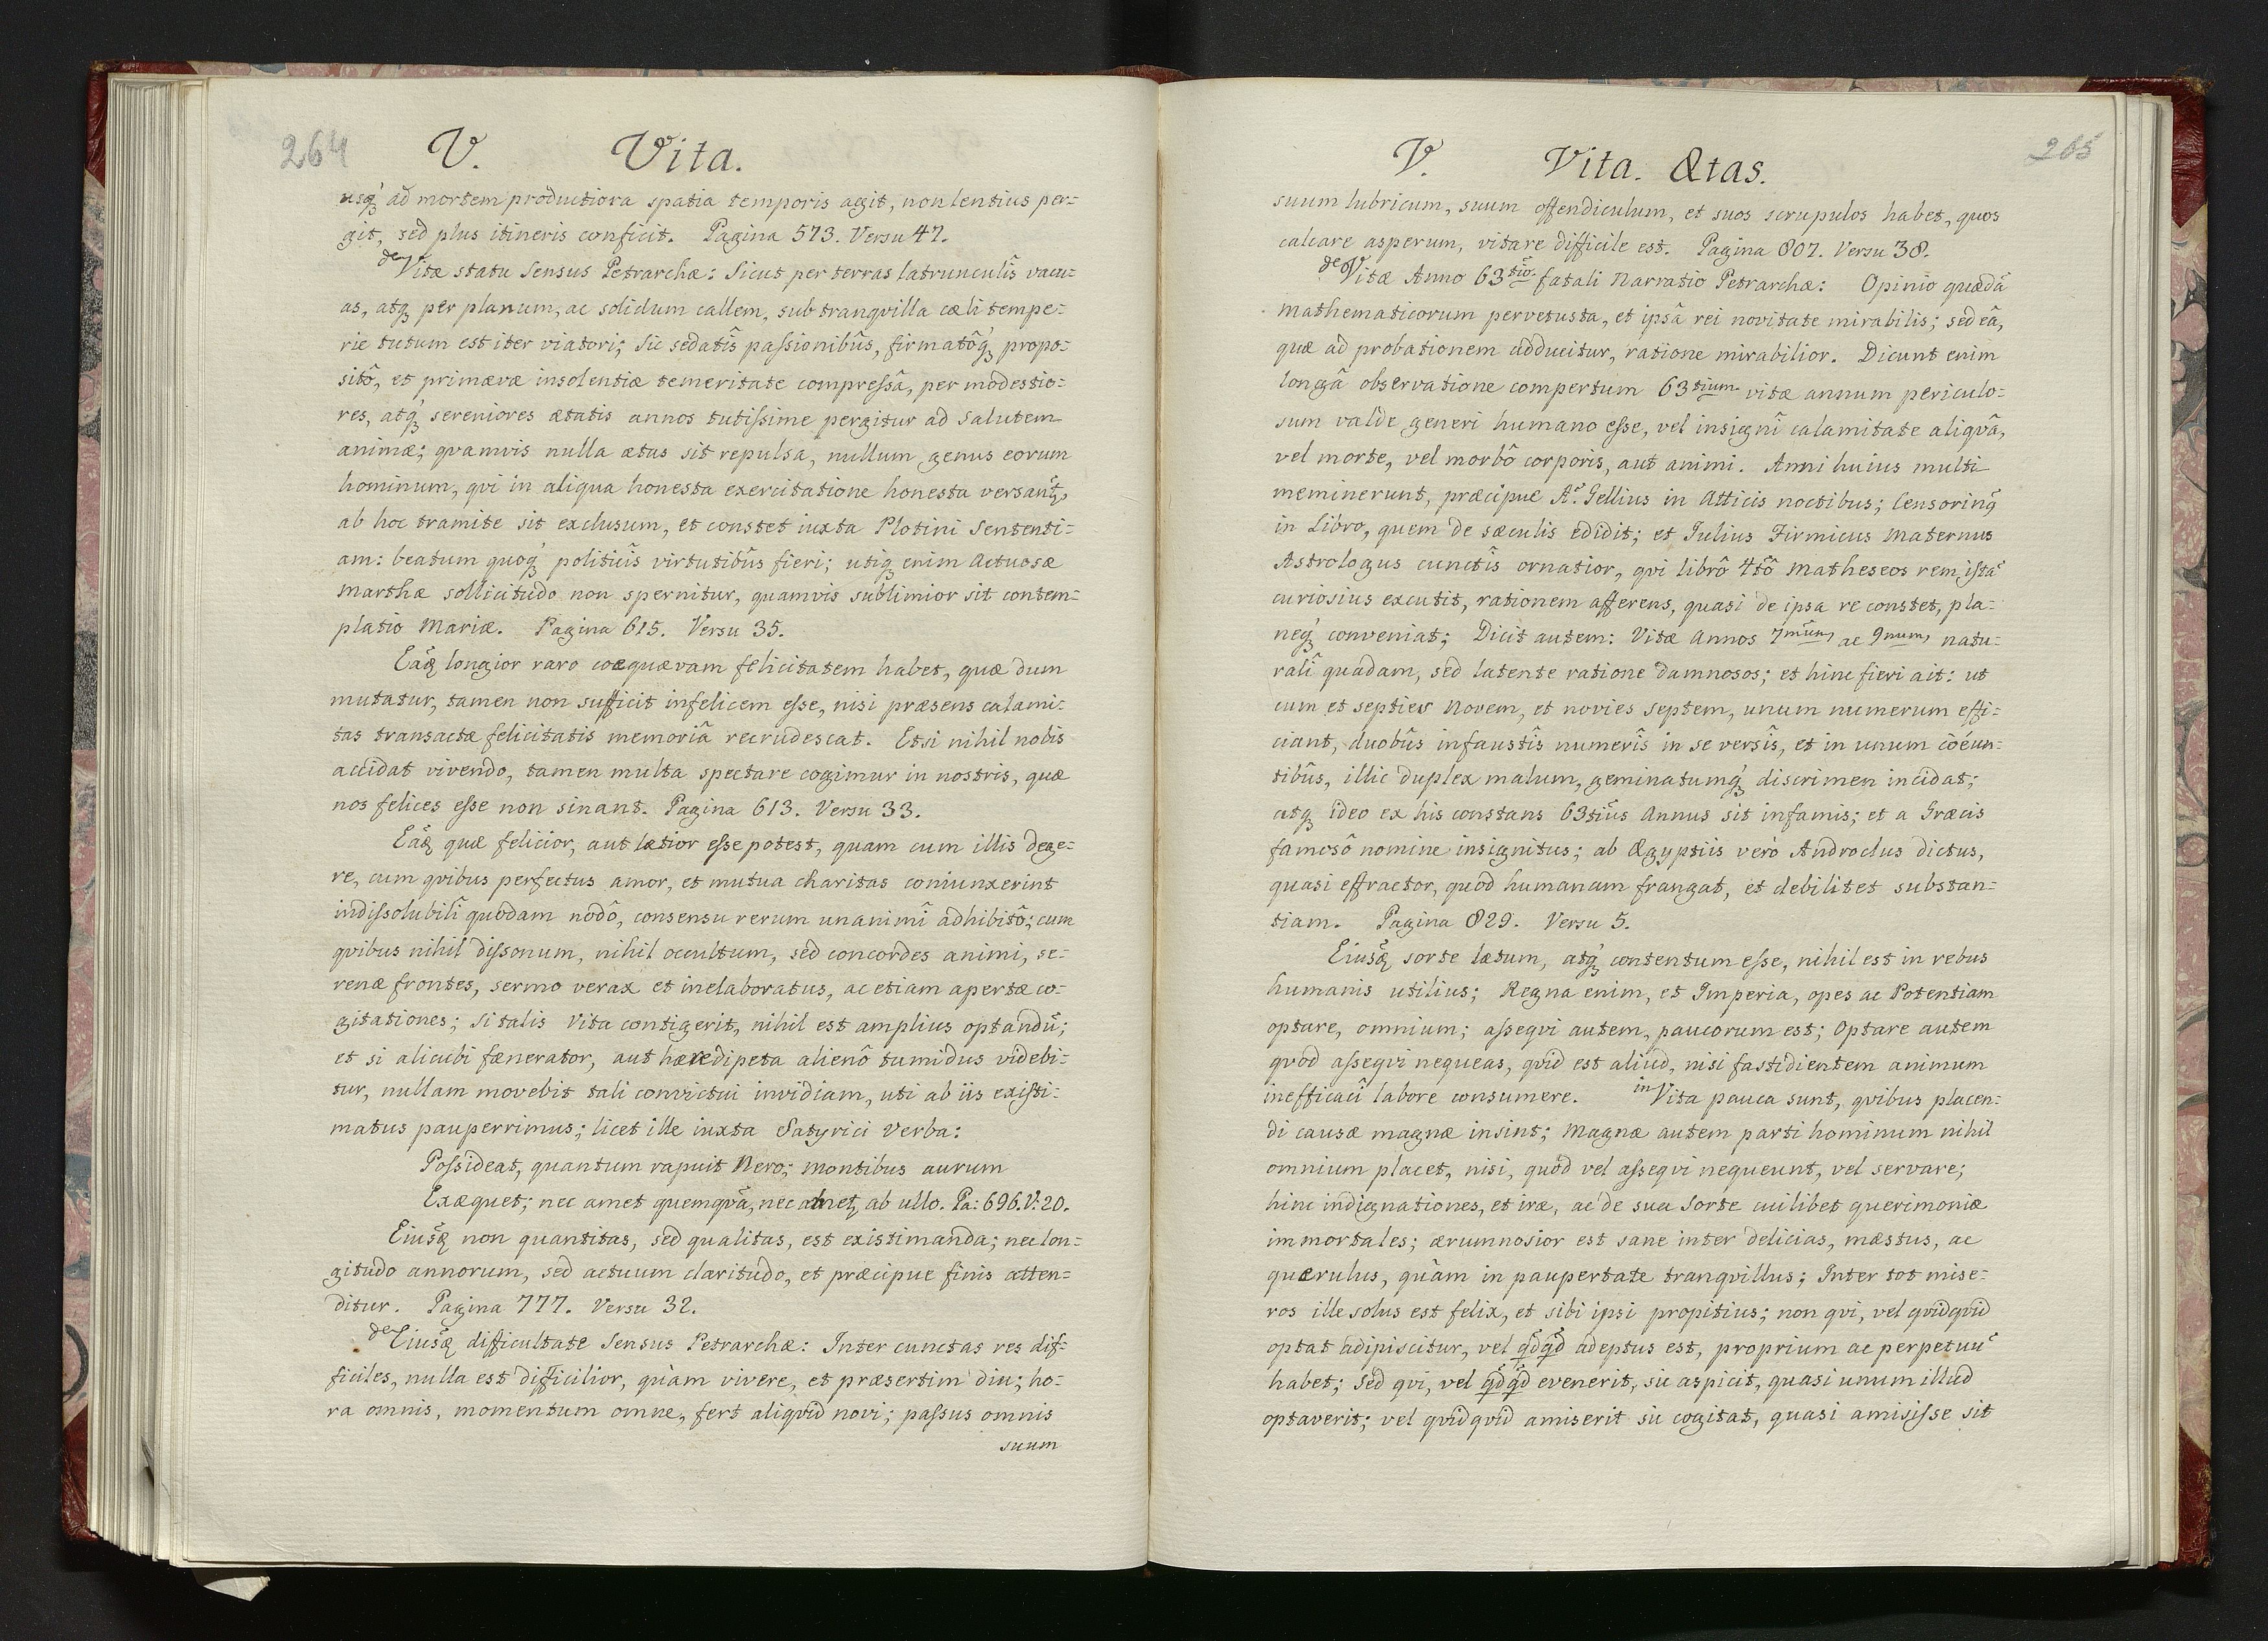 264
V. Vita.
usq́ꝫ ad mortem productiora spatia temporis agit, non lentius per=
git, sed plus itineris conficit. Pagina 573. Versu 47.
de Vitæ statu Sensus Petrarchæ: Sicut per terras latrunculîs vacu=
as, atqꝫ per planum, ac solidum callem, sub tranqvilla cæli tempe=
rie tutum est iter viatori; Sic sedatîs paſsionibûs, firmatôq́ꝫ propo=
sitô, et primævæ insolentiæ temeritate compreſsâ, per modestio=
res, atq́ꝫ sereniores ætatis annos tutiſsime pergitur ad salutem
animæ; qvamvis nulla ætas sit repulsa, nullum genus eorum
hominum, qvi in aliqua honesta exercitatione honesta versantꝫ,
ab hoc tramite sit exclusum, et constet iuxta Plotini Sententi=
am: beatum quoq́ꝫ politicîs virtutibûs fieri; utiqꝫ enim Actuosæ
Marthæ sollicitudo non spernitur, quamvis sublimior sit contem=
platio Mariæ. Pagina 615. Versu 35.
Eãqꝫ longior raro coæquævam felicitatem habet, quæ dum
mutatur, tamen non sufficit infelicem eſse, nisi præsens calami=
tas transactæ felicitatis memoriâ recrudescat. Etsi nihil nobis
accidat vivendo, tamen multa spectare cogimur in nostris, quæ
nos felices eſse non sinant. Pagina 613. Versu 33.
Eãqꝫ quæ felicior, aut lætior eſse potest, quam cum illis dege=
re, cum qvibus perfectus amor, et mutua charitas coniunxerint
indiſsolubilî quodam nodô, consensu rerum unanimî adhibitô; cum
qvibus nihil diſsonum, nihil occultum, sed concordes animi, se=
renæ frontes, sermo verax et inelaboratus, ac etiam apertæ co=
gitationes; si talis Vita contigerit, nihil est amplius optandũ;
et si alicubi fænerator, aut hæredipeta alienô tumidus videbi=
tur, nullam movebit tali convictui invidiam, uti ab iis existi=
matus pauperrimus; licet ille iuxta Satyrici Verba:
Poſsideat, quantum rapuit Nero; montibus aurum
Exæquet; nec amet quemqvã, nec ametꝫ ab ullo. Pa: 696. V: 20.
Eiusq̃ꝫ non quantitas, sed qualitas, est existimanda; nec lon=
gitudo annorum, sed actuum claritudo, et præcipue finis atten=
ditur. Pagina 777. Versu 32.
de Eiusq̃ꝫ difficultate Sensus Petrarchæ: Inter cunctas res dif=
ficiles, nulla est difficilior, quàm vivere, et præsertim diu; ho=
ra omnis, momentum omne, fert aliqvid novi; paſsus omnis
suum
265
V. Vita. Ætas.
suum lubricum, suum offendiculum, et suos scrupulos habet, quos
calcare asperum, vitare difficile est. Pagina 807. Versu 38.
de Vitæ Anno 63tiô fatali Narratio Petrarchæ: Opinio quædã
Mathematicorum pervetusta, et ipsâ rei novitate mirabilis; sed eâ,
quæ ad probationem adducitur, ratione mirabilior. Dicunt enim
longâ observatione compertum 63tium vitæ annum periculo=
sum valde generi humano eſse, vel insignî calamitate aliqvâ,
vel morte, vel morbô corporis, aut animi. Anni huius multi
meminerunt, præcipue A: Gellius in Atticis noctibus; Censorinꝰ
in Libro, quem de sæculis edidit; et Iulius Firmicus Maternus
Astrologus cunctîs ornatior, qvi librô 4tô Matheseos rem istã
curiosius excutit, rationem afferens, quasi de ipsa re constet, pla=
neq́ꝫ conveniat; Dicit autem: Vitæ Annos 7mum, ac 9num, natu=
ralî quadam, sed latente ratione damnosos; et hinc fieri ait: ut
cum et septies Novem, et novies septem, unum numerum effi=
ciant, duobûs infaustîs numerîs in se versîs, et in unum coëun=
tibûs, illic duplex malum, geminatumq́ꝫ discrimen incidat;
atqꝫ ideo ex his constans 63tius Annus sit infamis; et a Græcis
famosô nomine insignitus; ab Ægyptiis verò Androclus dictus,
quasi effractor, quòd humanam frangat, et debilitet substan=
tiam. Pagina 829. Versu 5.
Eiusq̃ꝫ sorte lætum, atq́ꝫ contentum eſse, nihil est in rebus
humanis utilius; Regna enim, et Imperia, opes ac Potentiam
optare, omnium; aſseqvi autem, paucorum est; Optare autem
qvod aſseqvi nequeas, qvid est aliud, nisi fastidientem animum
inefficacî labore consumere. in Vita pauca sunt, qvibus placen=
di causæ magnæ insint; Magnæ autem parti hominum nihil
omnium placet, nisi, quòd vel aſseqvi nequeunt, vel servare;
hinc indignationes, et iræ, ac de sua Sorte cuilibet querimoniæ
immortales; ærumnosior est sane inter delicias, mæstus, ac
quærulus, quàm in paupertate tranqvillus; Inter tot mise=
ros ille solus est felix, et sibi ipsi propitius; non qvi, vel qvidqvid
optat adipiscitur, vel q̃dq̃d adeptus est, proprium ac perpetuũ
habet; Sed qvi, vel q̃dq̃d evenerit, sic aspicit, quasi unum illud
optaverit; vel qvidqvid amiserit sic cogitat, quasi amisiſse sit